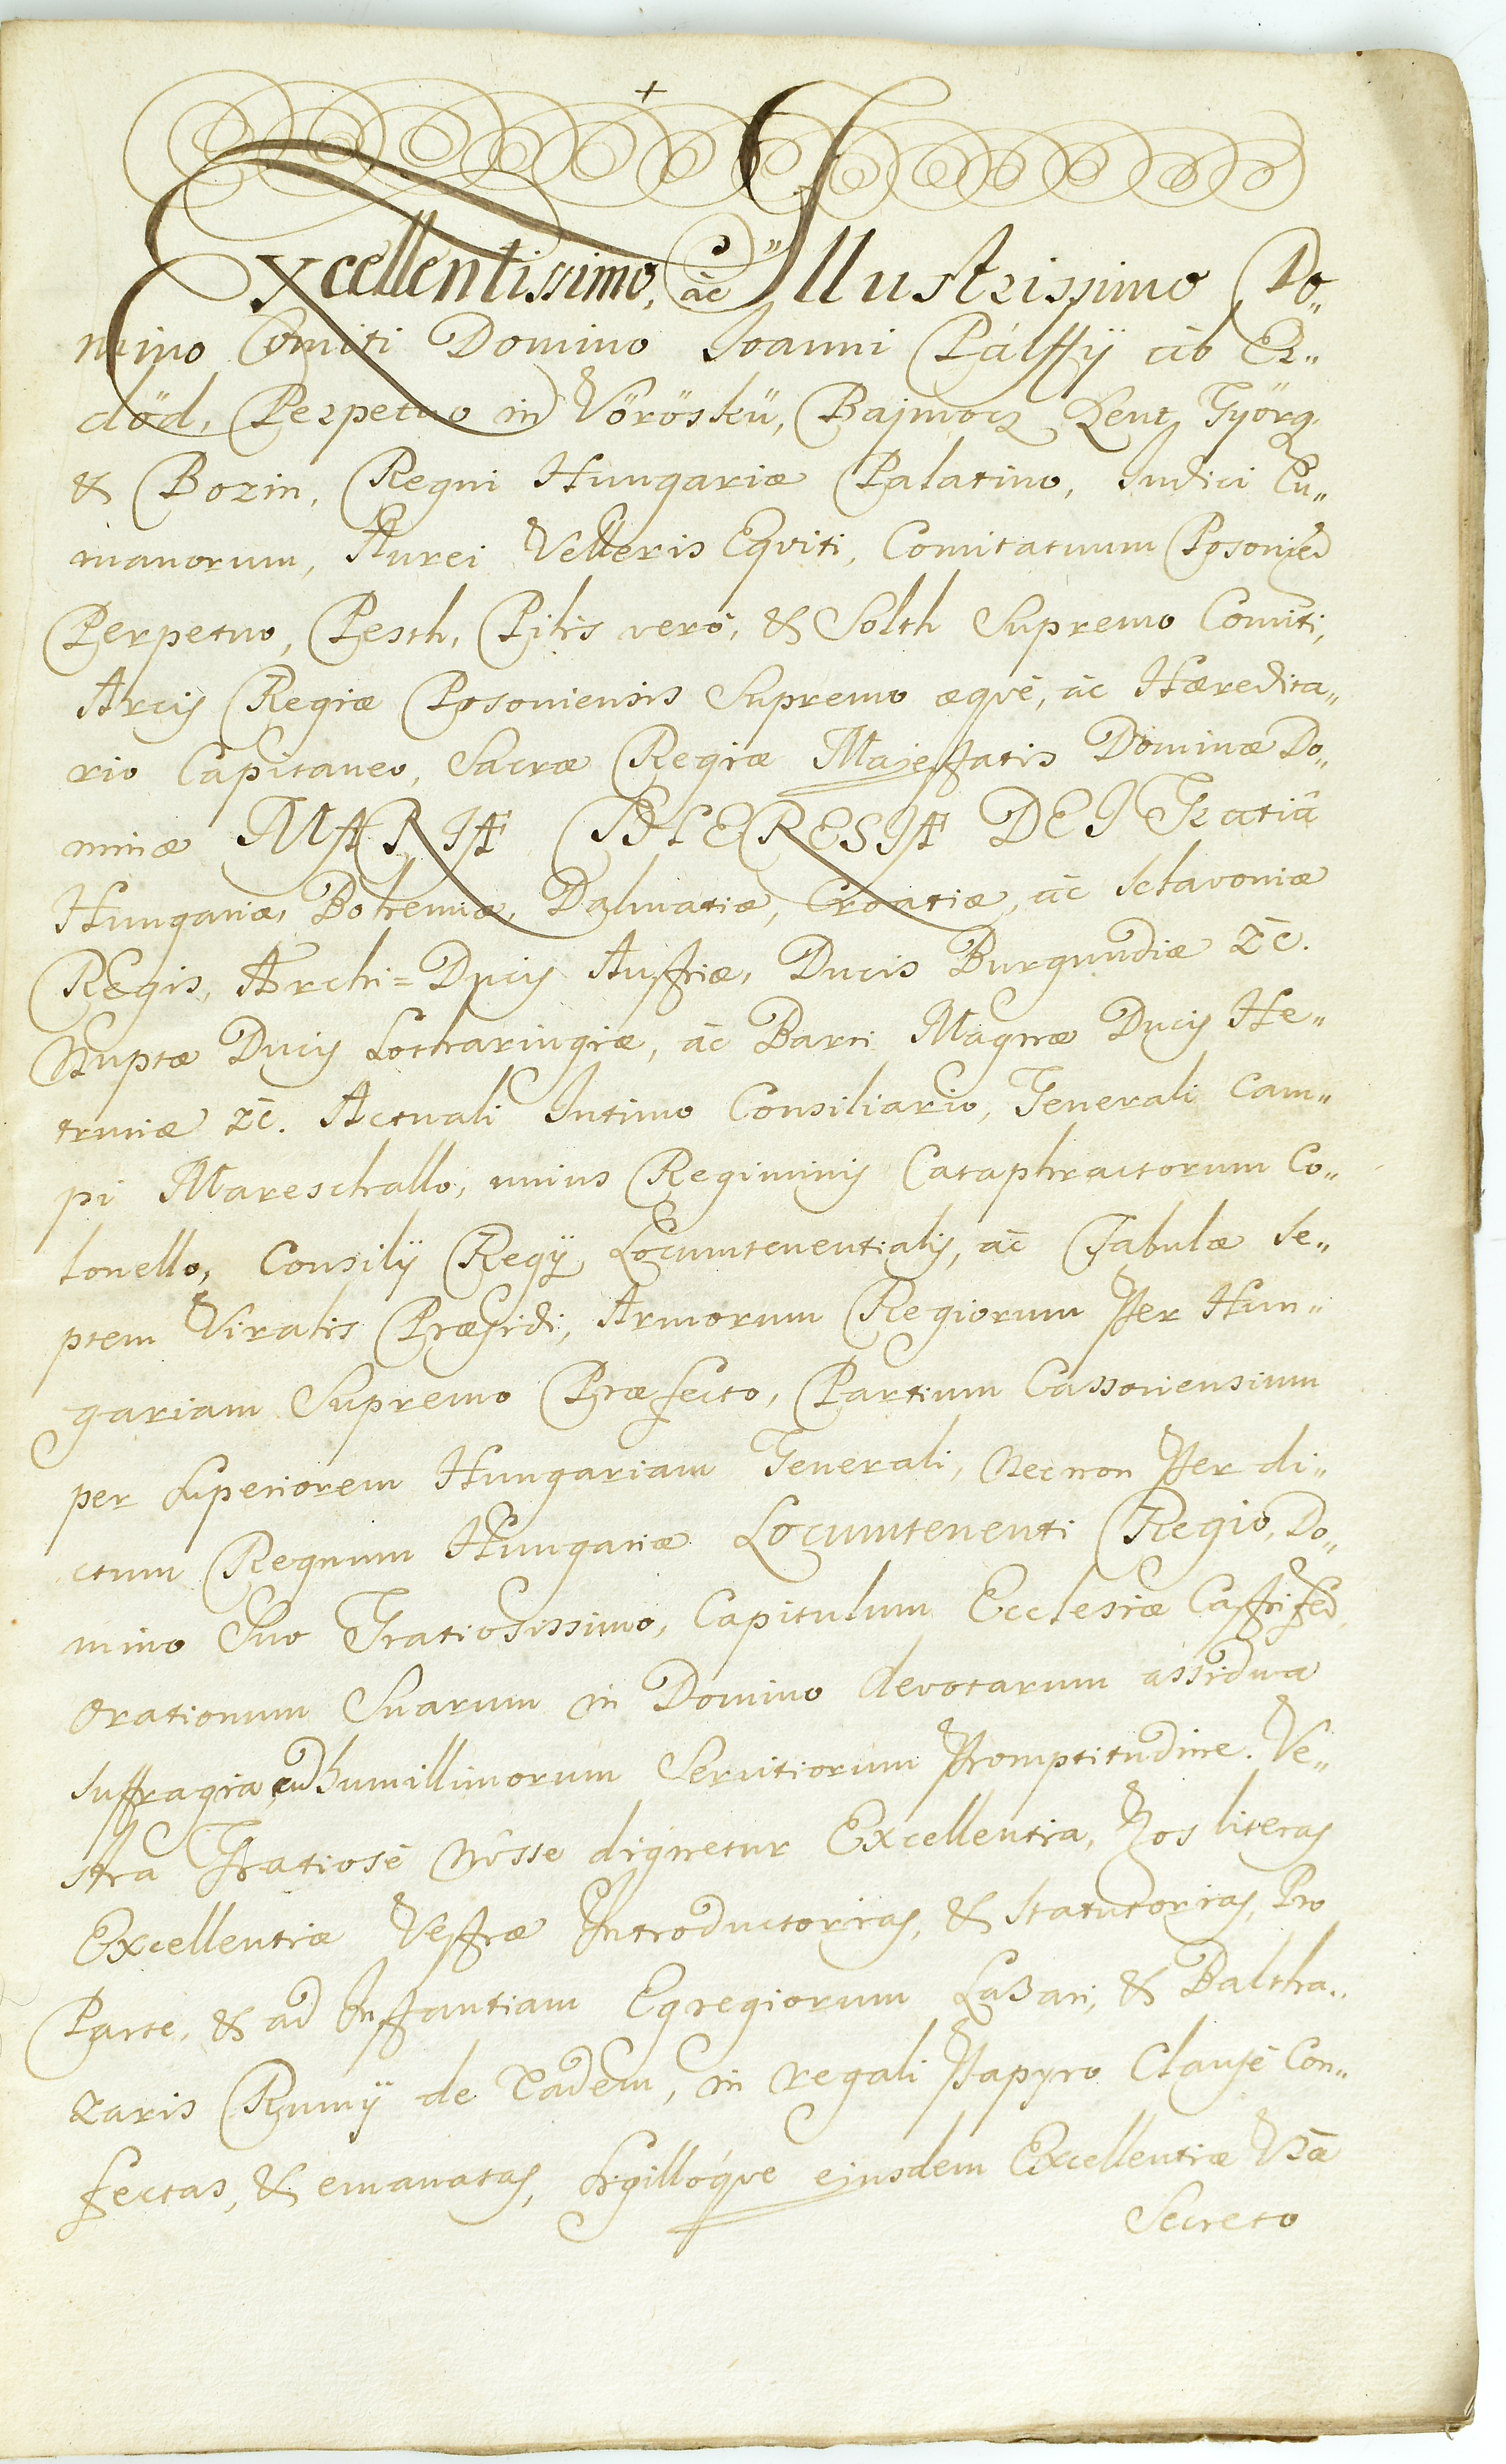 +
Excellentissimo, ac Illustrissimo Do„
mino Comiti Domino Joanni Pálffÿ ab Er„
död, Perpetuo in Vöröskü, Bajmocz Zent Györg
& Bozin, Regni Hungariæ Palatino, Judici Cu„
manorum, Aurei Velleris Equiti, Comitatuum Posonien
Perpetuo, Pesth, Pilis verò, & Solth Supremo Comiti,
Arcis Regiæ Posoniensis Supremo æquè, ac Hæredita„
rio Capitaneo, Sacræ Regiæ Majestatis Dominæ Do„
minæ MARIA THERESIA DEI Gratiâ
Hungariæ, Bohemiæ, Dalmatiæ, Croatiæ, ac Sclavoniæ
REgis, Archi=Ducis Austriæ, Ducis Burgundiæ &c.
Nuptæ Ducis Lotharingiæ, ac Barri Magnæ Ducis He„
truriæ &c. Actuali Intimo Consiliario, Generali Cam„
pi Mareschallo, unius Regiminis Cataphractorum Co„
lonello, Consilÿ Regÿ Locumtenentialis, ac Tabulæ Se„
ptem Viralis Præsidi, Armorum Regiorum Per Hun„
gariam Supremo Præfecto, Partium Cassoviensium
per Superiorem Hungariam Generali, Necnon Per di„
ctum Regnum Hungariæ Locumtenenti Regio, Do„
mino Suo Gratiosissimo, Capitulum Ecclesiæ Castriferd
Orationum Suarum in Domino devotarum assidua
suffragia, cum humillimorum Servitiorum Promptitudine. Ve„
stra Gratiosè Nôsse dignetur Excellentia, Nos literas
Excellentiæ Vestræ Introductorias, & Statutorias, Pro
Parte, & ad Instantiam Egregiorum Lazari, & Baltha„
zaris Rumÿ de Eadem, in regali Papyro Clausè Con„
fectas, & emanatas, Sigillóque ejusdem Excellentiæ Vrã
Secreto